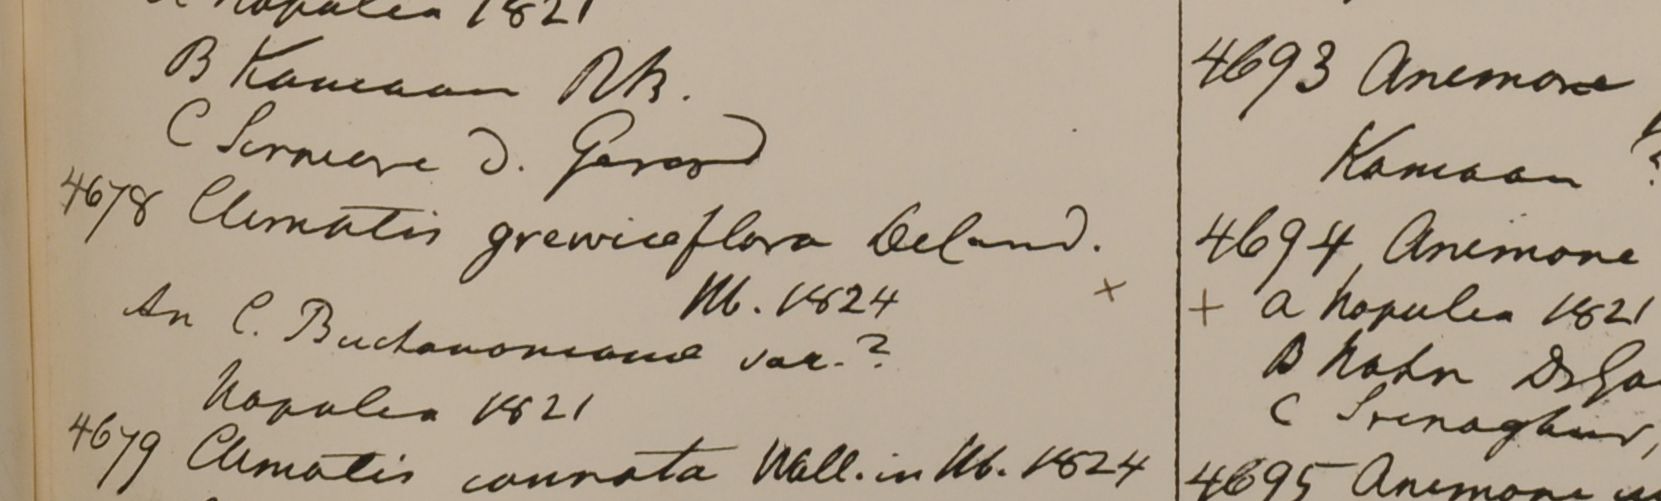 Napulea 1821
B Kamaon R.B.
C Sirmore D. Gerard
4678 Clematis grewiaeflora Decand.
Hb. 1824 +
An C. Buchananiana var.?
Napalea 1821
4679 Clematis connata Wall. in Hb. 1824
4693 Anemone
Kamaon
4694 Anemone
+ a Napulea 1821
B Nahn Dr Go
C Srinaghur,
4695 Anemone